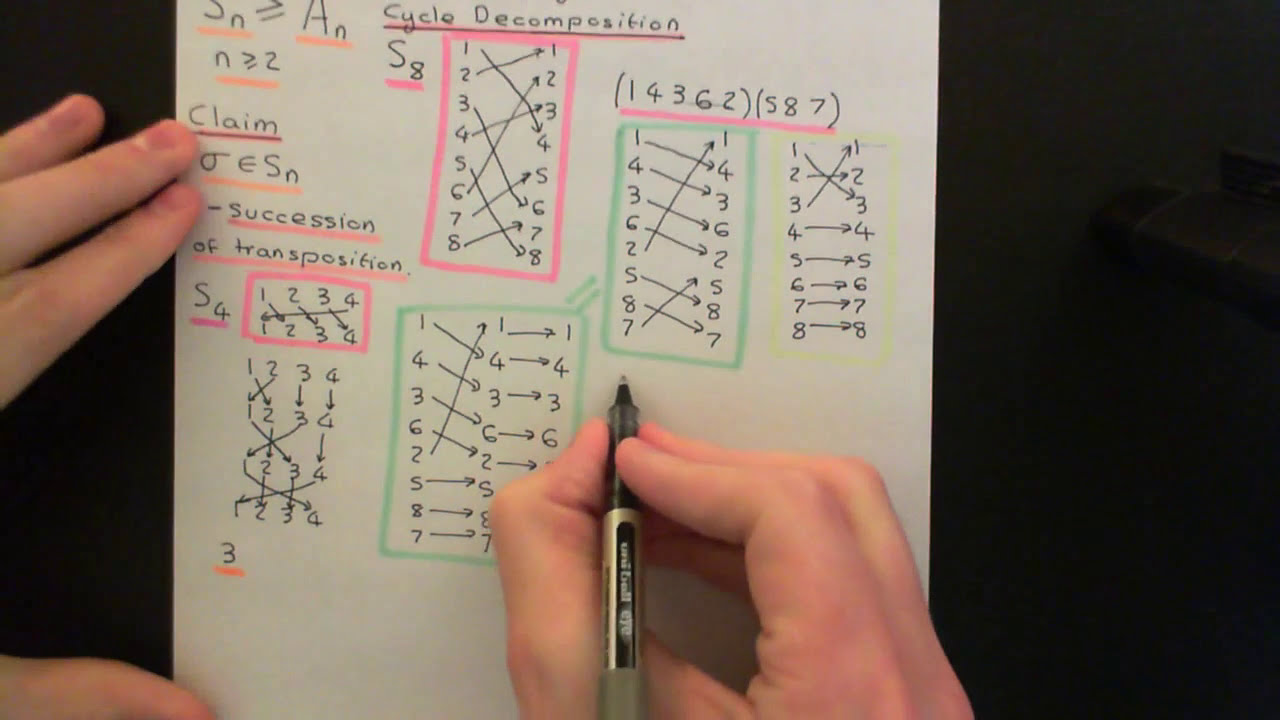 Sn ≥ An
n ≥ 2
Claim
σ ∈ Sn
- succession
of transposition.
S4
1 2 3 4
1 2 3 4
1 2 3 4
1 2 3 4
1 2 3 4
1 2 3 4
3
Cycle Decomposition
S8
1 1
2 2
3 3
4 4
5 5
6 6
7 7
8 8
(1 4 3 6 2)(5 8 7)
1 1
4 4
3 3
6 6
2 2
5 5
8 8
7 7
1 1
2 2
3 3
4 → 4
5 → 5
6 → 6
7 → 7
8 → 8
1 1 → 1
4 4 → 4
3 3 → 3
6 6 → 6
2 2 →
5 → 5
8 → 8
7 → 7
uniball eye